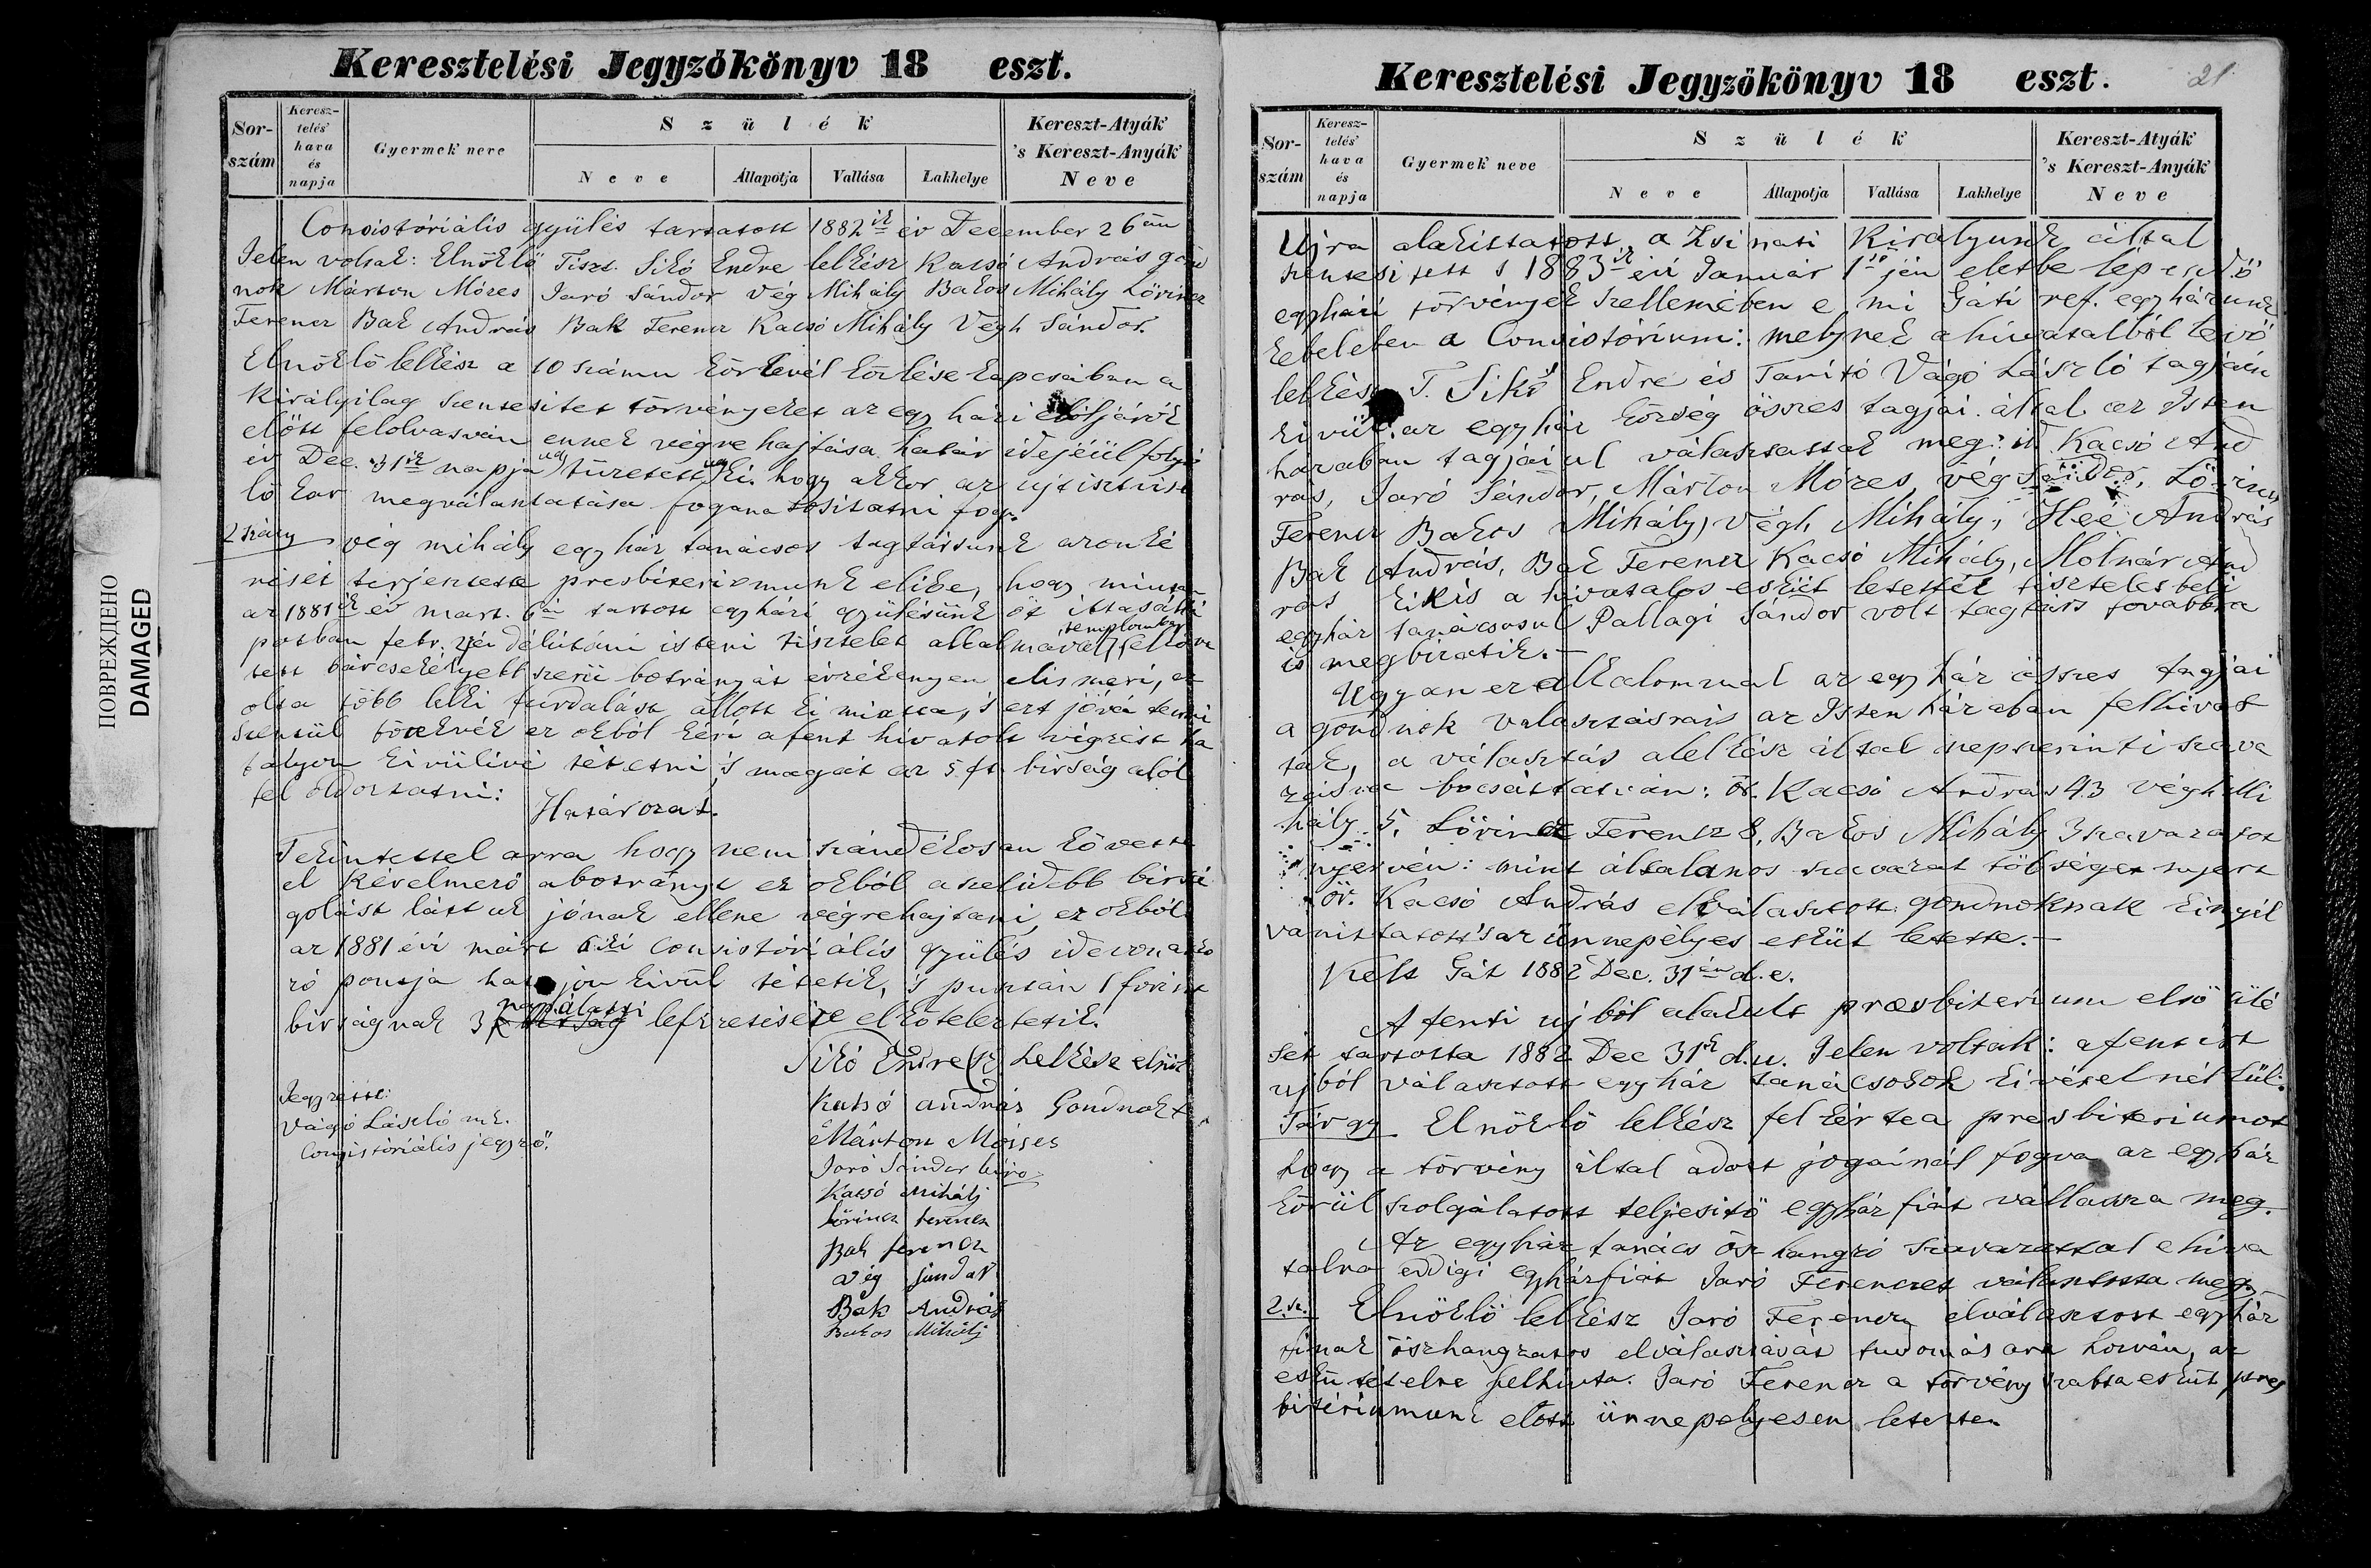 ПОВРЕЖДЕНО
DAMAGED
Keresztelési Jegyzőkönyv 18 eszt.
Sor-szám
Keresz-telés hava és napja
Gyermek neve
Szülék
Neve
Állapotja
Vallása
Lakhelye
Kereszt-Atyák 's Kereszt-Anyák Neve
Consistóriális gyülés tartatott 1882ik év December 26án
Jelen voltak: Elnöklő Tiszt. Sikó Endre lelkész Kacsó András gond
nok Márton Mózes Jaró Sándor Vég Mihály Bakos Mihály Lőrincz
Ferencz Bak András Bak Ferencz Kacsó Mihály Végh Sándor.
Elnöklő lelkész a 10 számu körlevél közlése kapcsában a
Királyilag szentesitet törvényeket az egy házi előljárók
előtt felolvasván ennek végre hajtása határ idejéül folyó
év Dec. 31ik napja tüzetett ki hogy akkor az uj tisztvise
lő kar megválasztatása foganatositatni fog.
2 tárgy Vég mihály egy ház tanácsos tagtársunk azon ké
rését terjesztette presbiteriomunk elibe, hogy miután
az 1881ik év mart. 6án tartott egyházi gyülésünk őt ittasági
potban febr. délutáni isteni tisztelet alkalmával templomban elköve
tett bárcsekélyebb szerü botrányát érzékenyen elismeri, ez
olta több lelki furdalást állott ki miatta, s ezt jóvá tenni
szentül törekvék ez okból kéri a fent hivatolt végzést ha
tályon kivülivé tétetni, s magát az 5 ft birság alól
fel oldoztatni:
Határozat.
Tekintettel arra hogy nem szándékosan követte
el kérelmező a botrányt ez okból a szelidebb birsá
golást láttuk jónak ellene végrehajtani, ez okból
az 1881 évi márt 6iki consistóriális gyülés ide vonatko
zó pontja hatájon kivül tétetik, s pusztán 1 forint
birságnak 3 nap alatti lefizetésére elköteleztetik.
Sikó Endre sk Lelkész elnök
Jegyzette:
Vágó László mk.
Consistóriális jegyző.
Katsó andrás Gondnok
Márton Moises
Jaró Sándor biro
Katsó Mihálj
Lőrincz ferencz
Bak ferencz
vég sándor
Bak András
Bakos Mihálj
Keresztelési Jegyzőkönyv 18 eszt.
21
Sor-szám
Keresz-telés hava és napja
Gyermek neve
Szülék
Neve
Állapotja
Vallása
Lakhelye
Kereszt-Atyák 's Kereszt-Anyák Neve
Ujra alakittatott, a Zsinati Királyunk által
szentesitett s 1883ik évi Január 1ső jén életbe lépendő
egyházi törvények szellemében e mi Gáti ref. egyházunk
kebelében a Consistórium: melynek a hivatalból levő
lelkész T. Sikó Endre és Tanitó Vágó László tagjain
kivül az egyház község összes tagjai által az Isten
házában tagjáiul választattak meg: id Kacsó And
rás, Jaró Sándor, Márton Mózes, vég Sándor, Lőrincz
Ferencz Bakos Mihály, Végh Mihály, Illeé András
Bak András, Bak Ferencz Kacsó Mihály, Molnár And
rás kikis a hivatalos esküt letették tiszteletbeli
egyház tanácsosul Pallagi Sándor volt tagtárs továbbra
is megbizatik.—
Ugyan ez alkalommal az egy ház összes tagjai
a gondnok választásrais az Isten házában felhivat
tak, a választás a lelkész által népszerinti szava
zásra bocsáttatván: öt. Kacsó András 43 végh Mi
hály 5. Lőrincz Ferencz 8, Bakos Mihály 3 szavazatot
nyervén: mint általános szavazat többséget nyert
öt. Kacsó András elválasztott gondnoknak kinyil
vanittatott s az ünnepélyes esküt letette.—
Kelt Gát 1882 Dec. 31én d.e.
A fenti ujból alakult presbiterium első ülé
sét tartotta 1882 Dec 31ik d.u. Jelen voltak: a fent irt
ujból választott egyház tanácsosok kivétel nél kül.
Tárgy Elnöklő lelkész fel kérte a presbiteriumot
hogy a törvény által adott jogainál fogva az egyház
körül szolgálatott teljesitő egyház fiát vállassza meg.
Az egyház tanács ösz hangzó szavazattal e hiva
talra eddigi egyházfiát Jaró Ferenczet választotta meg.
2. sz. Elnöklő lelkész Jaró Ferencz elválasztott egyház
finak öszhangzatos elválasztását tudomásara hozván, az
eskü tételre felhivta. Jaró Ferencz a törvény szabta esküt pres
bitériumunk előtt ünnepélyesen letette.